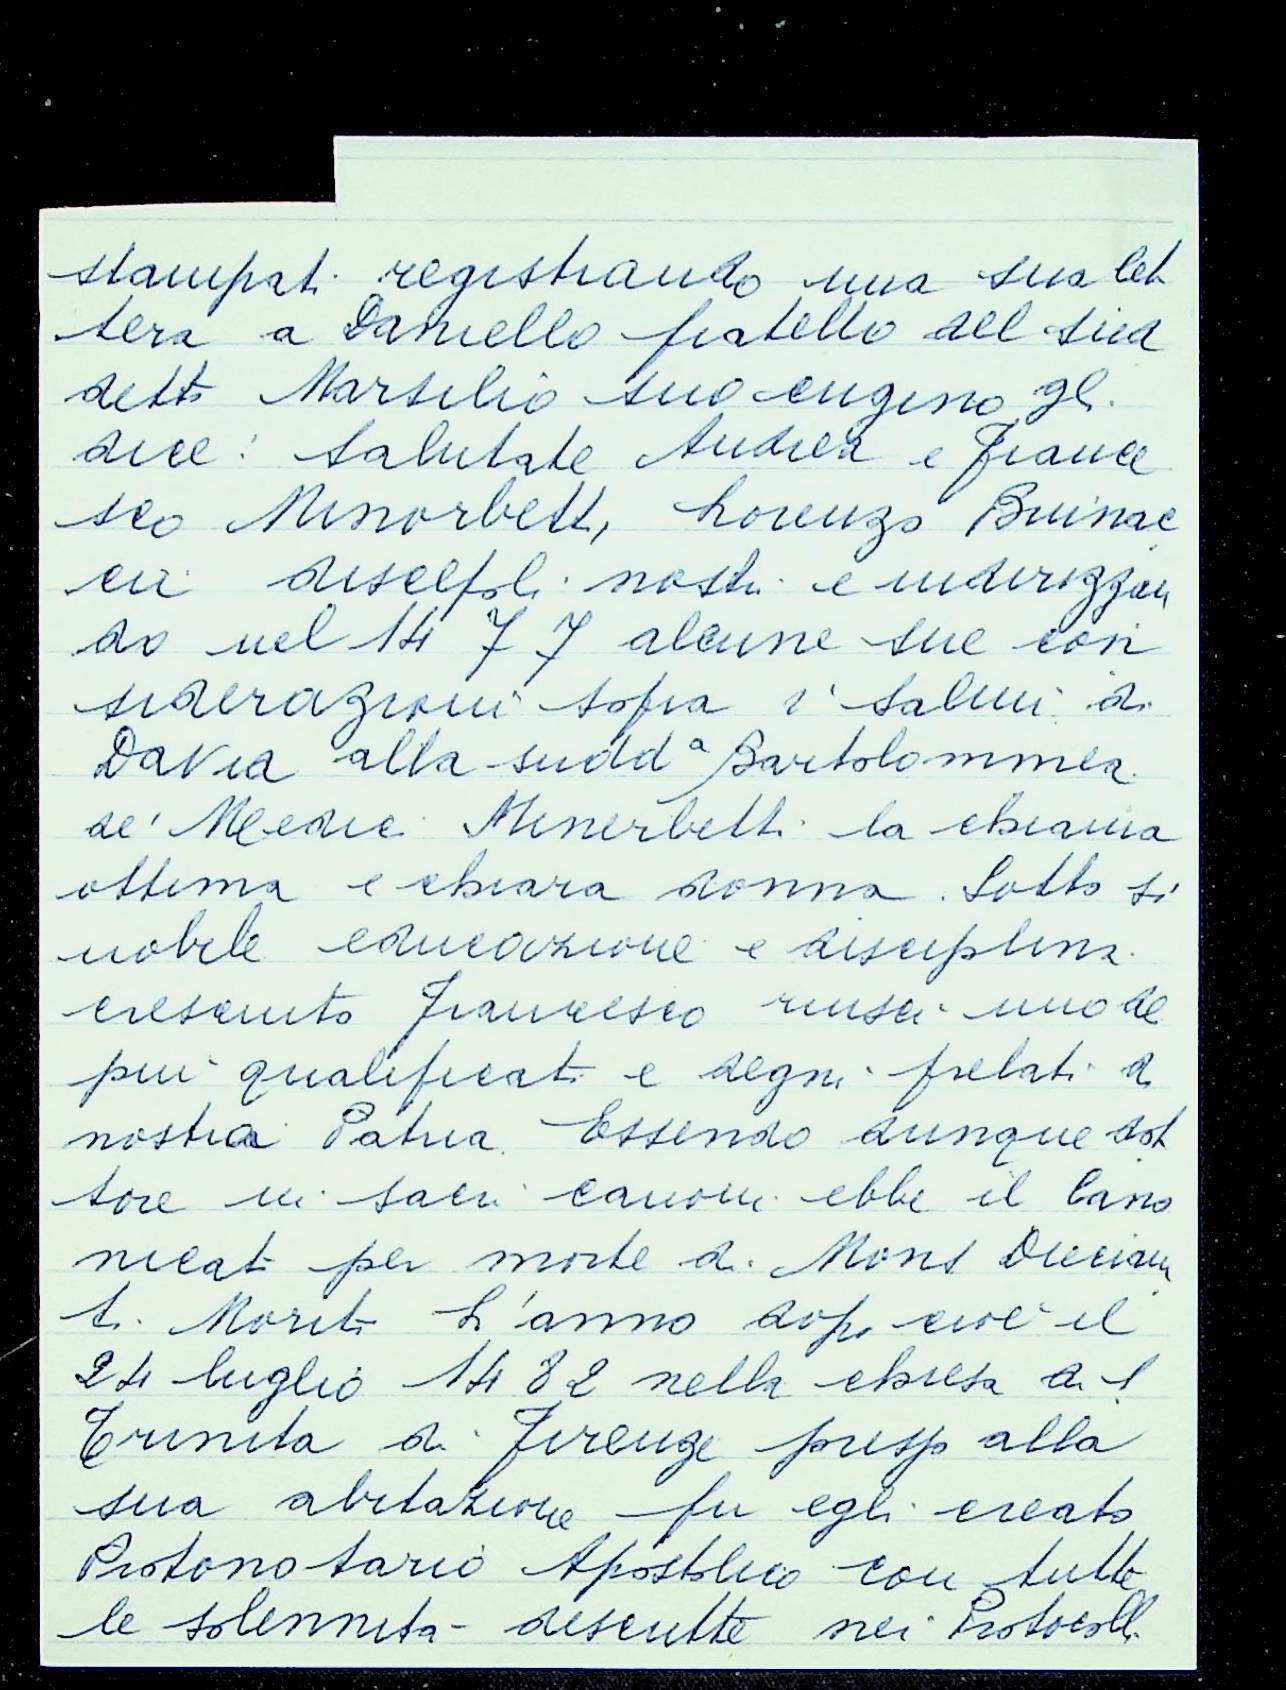 stampati registrando una sua let
tera a Daniello fratello del sud
detto Marsilio suo cugino gli
dice: Salutate Andrea e France
sco Minorbetti, Lorenzo Buinac
cii discepoli nostri e indirizzan
do nel 1477 alcune sue con
siderazioni sopra i salmi di
David alla sudda Bartolommea
de' Medici Minerbetti la chiama
ottima e chiara donna. Sotto si
nobile educazione e disciplina
cresciuto Francesco riuscì uno de
più qualificati e degni prelati di
nostra Patria. Essendo dunque dot
tore in sacri canoni ebbe il Cano
nicato per morte di Mons
ti Moriti L'anno dopo cioè il
24 luglio 1482 nella chiesa di S
Trinita di Firenze presso alla
sua abitazione fu egli creato
Protonotario Apostolico con tutte
le solennità descritte nei Protocolli